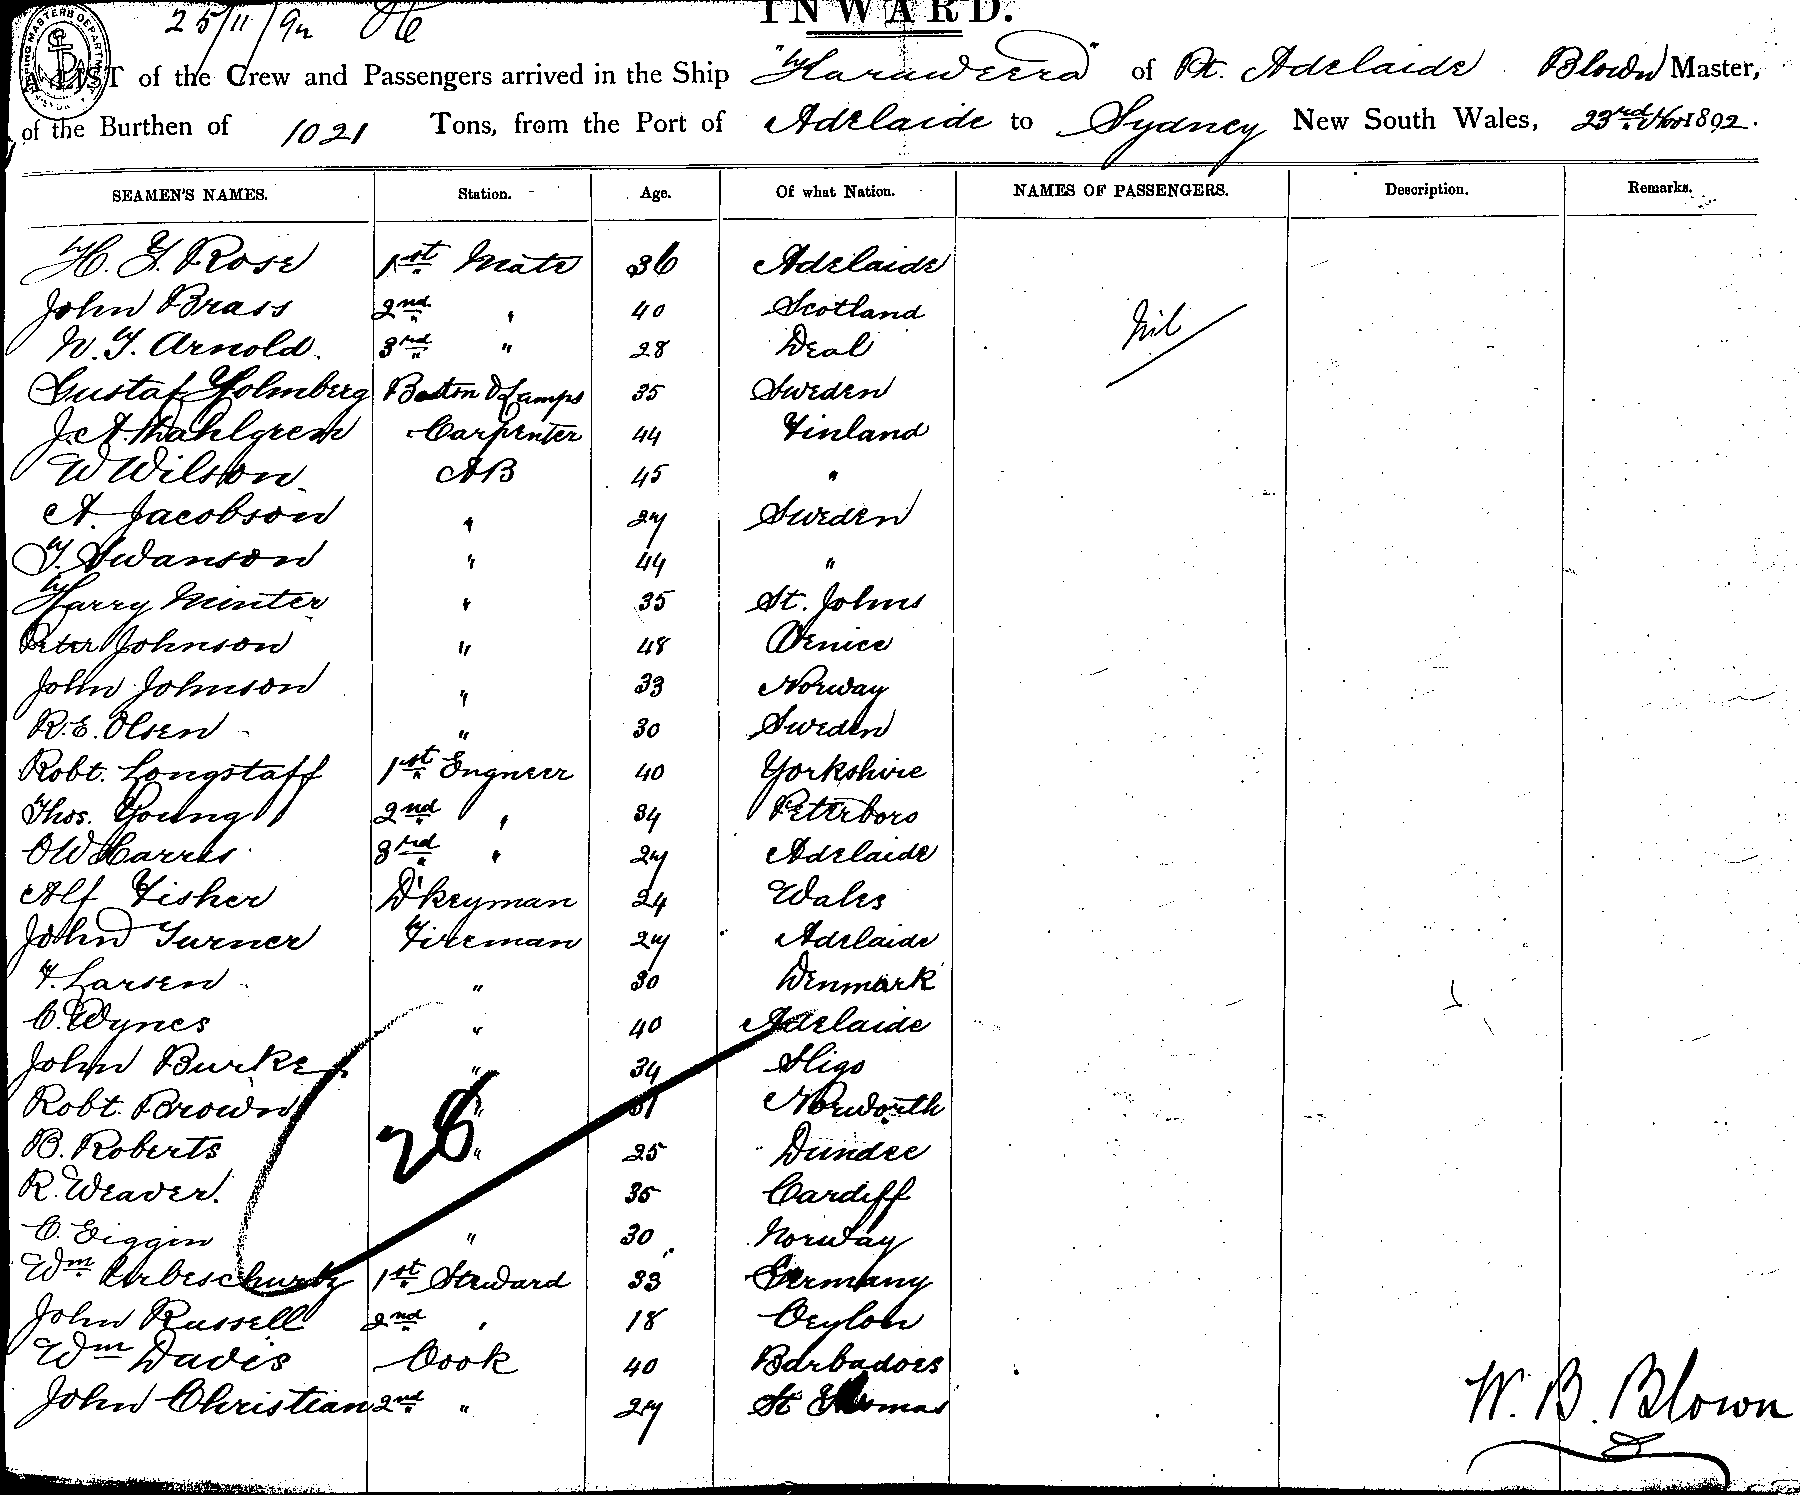 25/11/92
INWARD.
A LIST of the Crew and Passengers arrived in the Ship "Haraweera" of Pt. Adelaide Blown Master,
of the Burthen of 1021 Tons, from the Port of Adelaide to Sydney New South Wales, 23rd Nov 1892.
SEAMEN'S NAMES. Station. Age. Of what Nation. NAMES OF PASSENGERS. Description. Remarks.
H. F. Rose 1st Mate 36 Adelaide
John Brass 2nd " 40 Scotland Nil
W. F. Arnold. 3rd " 28 Deal
Gustaf Holmberg 35 Sweden
J. A. Dahlgren Carpenter 44 Finland
W Wilson AB 45 "
A. Jacobson " 27 Sweden
F. Swanson " 44 "
Harry Minter " 35 St. Johns
Peter Johnson " 48 Venice
John Johnson " 33 Norway
R. E. Olsen " 30 Sweden
Robt. Longstaff 1st Engneer 40 Yorkshire
Thos. Young 2nd " 34 Peterboro
O W Harris 3rd " 27 Adelaide
Alf Fisher D'keyman 24 Wales
John Turner Fireman 27 Adelaide
F. Larsen " 30 Denmark
C. Wynes " 40 Adelaide
John Burke " 34 Sligo
Robt. Brown " 31 Norworth
B. Roberts 28 " 25 Dundee
R. Weaver. 35 Cardiff
C. Eiggin " 30 Norway
Wm 1st Steward 33 Germany
John Russell 2nd " 18 Ceylon
Wm Davis Cook 40 Barbadoes
John Christian 2nd " 27 St Thomas
W. B. Blown